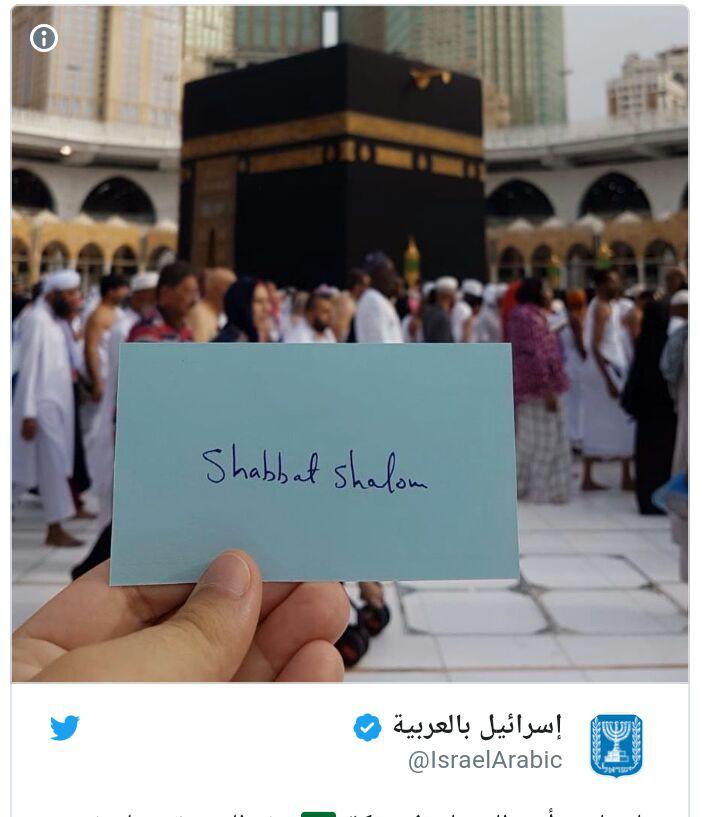 Shabbat shalom
إسرائيل بالعربية
@IsraelArabic